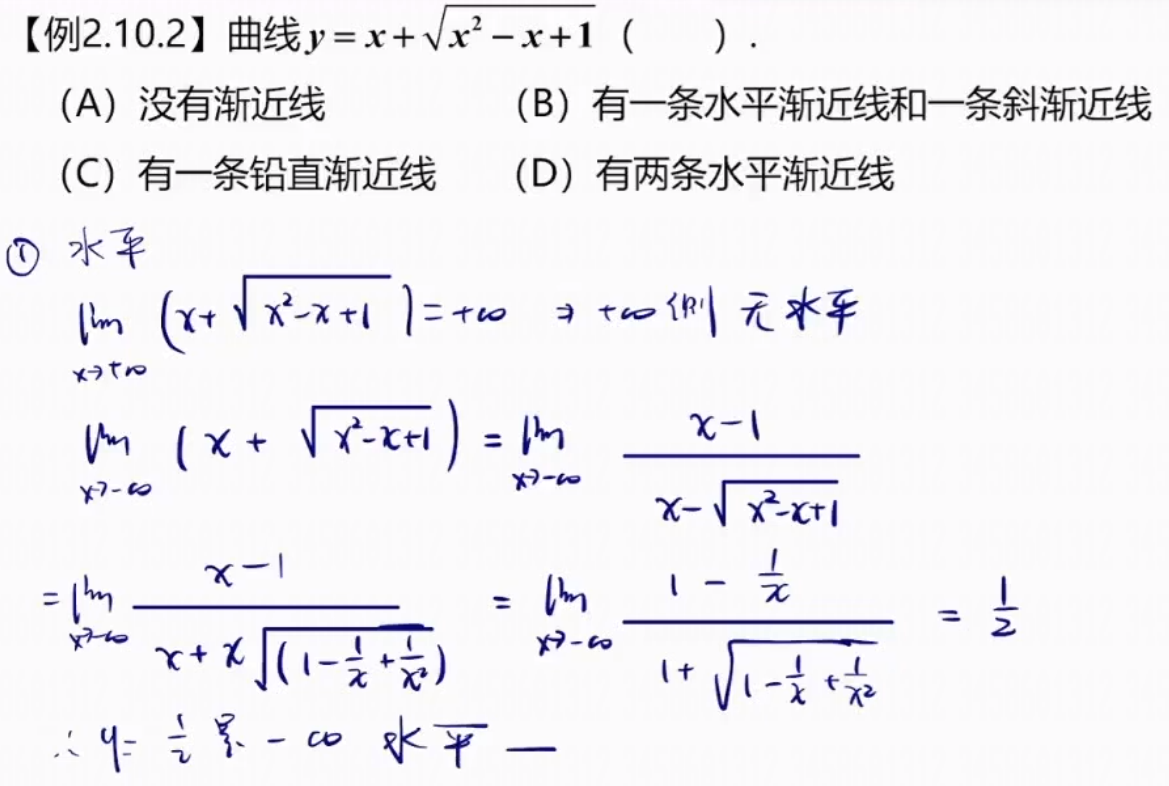 【例2.10.2】曲线 y = x + √(x² − x + 1) (    ) .
（A）没有渐近线 （B）有一条水平渐近线和一条斜渐近线
（C）有一条铅直渐近线 （D）有两条水平渐近线
① 水平
lim x→+∞ (x + √(x²-x+1)) = +∞ ⇒ +∞ 侧 无水平
lim x→-∞ (x + √(x²-x+1)) = lim x→-∞ (x-1)/(x-√(x²-x+1))
= lim x→-∞ (x-1)/(x+x√(1-1/x+1/x²)) = lim x→-∞ (1-1/x)/(1+√(1-1/x+1/x²)) = 1/2
∴ y = 1/2 是 -∞ 水平 —